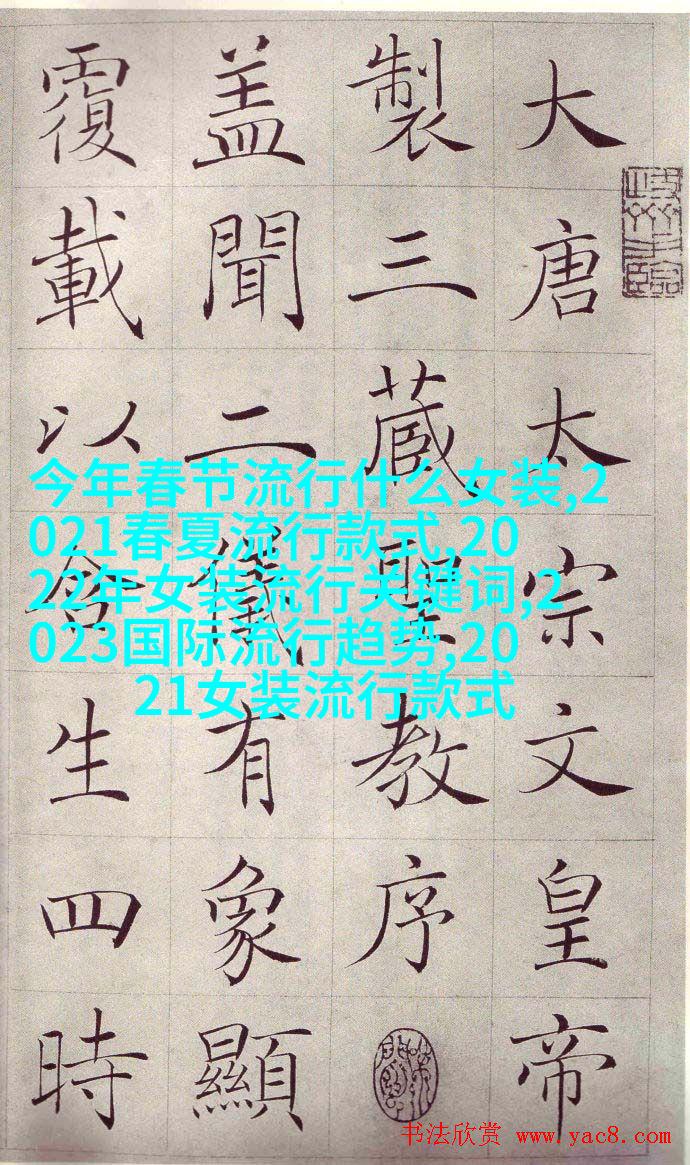 大唐太宗文皇帝
製三藏聖教序
盖聞二儀有象顯
覆載以含生四時
今年春节流行什么女装,2
021春夏流行款式,20
22年女装流行关键词,2
023国际流行趋势,20
21女装流行款式
书法欣赏 www.yac8.com